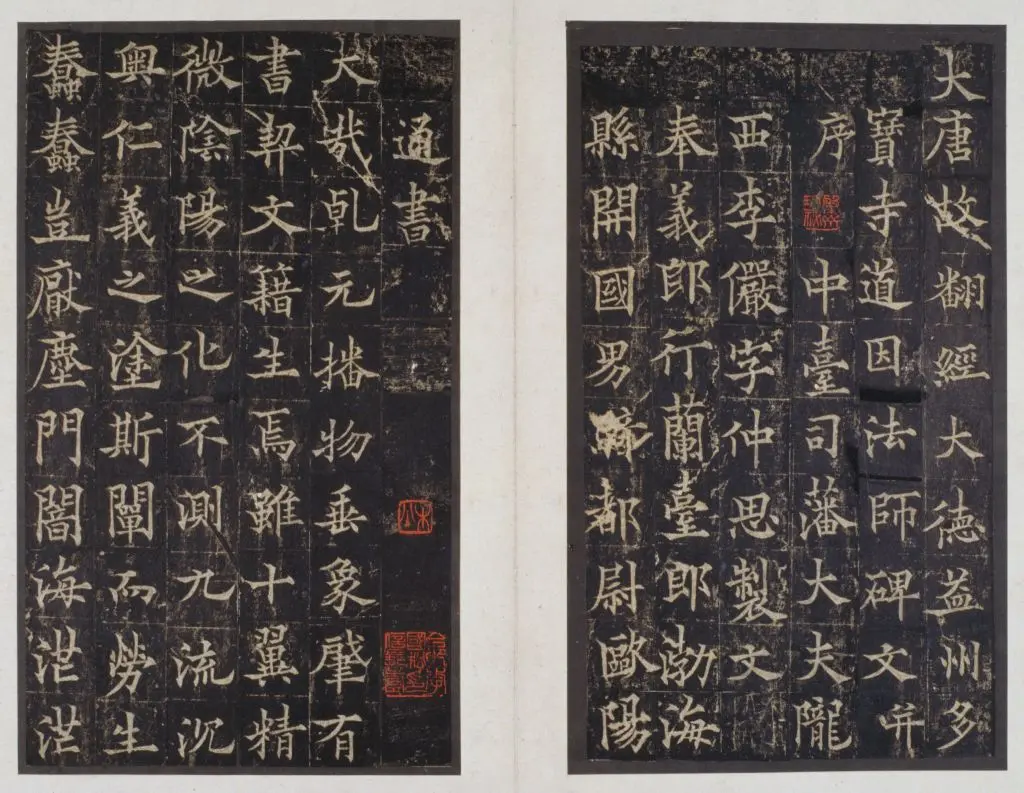 大唐故翻經大德益州多
寶寺道因法師碑文并
序中臺司藩大夫隴
西李儼字仲思製文
奉義郎行蘭臺郎渤海
縣開國男都尉歐陽
通書
大哉乹元播物垂象肇有
書契文籍生焉雖十翼精
微陰陽之化不測九流沉
奧仁義之塗斯闡而勞生
蠢蠢豈厭塵門闇海茫茫